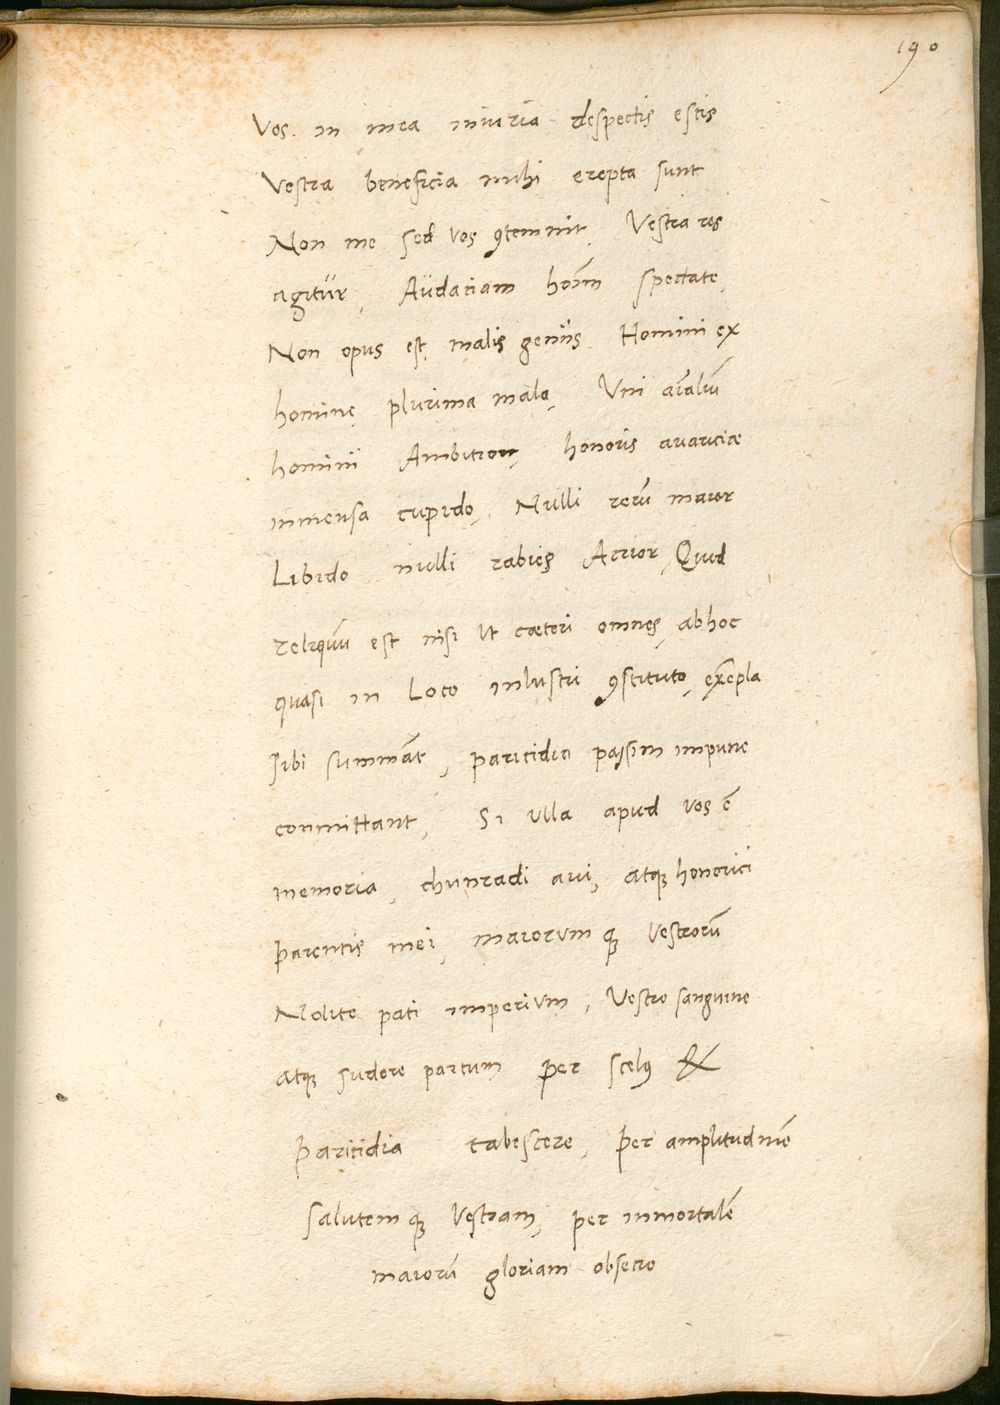 190
Vos. in mea iniuria despectis estis
Vestra beneficia mihi erepta sunt
Non me sed vos ꝯtemnit, Vestra res
agitur, Audaciam hoīm spectate,
Non opus est malis geniis Homini ex
homine plurima mala, Uni aīaliū
homini Ambitrou, honoris auariciæ
inmensa cupido, Nulli rerū maior
Libido nulli rabies Acrior, Quid
reliquūu est nisi ut cæteri omnes, ab hoc
quasi in Loco inlustri ꝯstituto, exēpla
sibi summāt, paricidia passim impune
conmittant, Si ulla apud vos ē
memoria, chunradi aui, atqꝫ honorici
parentis mei, maiorum qꝫ vestrorū
Nolite pati imperium, Vestro sanguine
atqꝫ sudore partum per scelꝰ &
paricidia tabescere, per amplitudinē
salutem qꝫ vestram, per inmortalē
maiorū gloriam obsecro